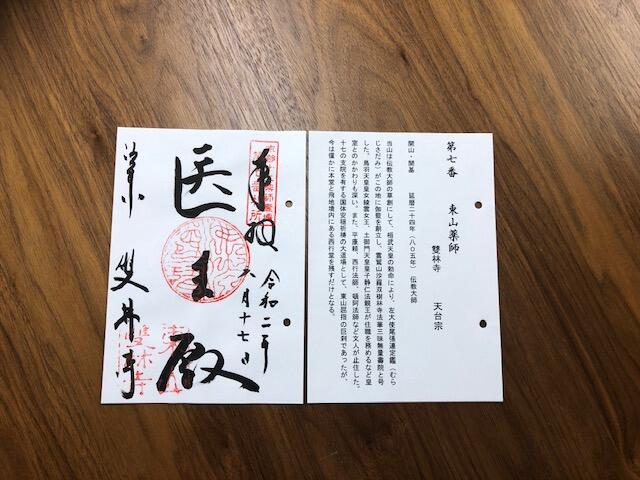 第七番　東山薬師
雙林寺　天台宗
開山・開基　延暦二十四年（八〇五年）伝教大師
当山は伝教大師の草創にして、桓武天皇の勅命により、左大使尾張連定鑑（むら
じさだみ）がこの地に伽藍を創立し、霊鷲山沙羅双樹林寺法華三昧無量寿院と号
した。鳥羽天皇皇女綾雲女王、土御門天皇皇子静仁法親王が住職を務めるなど皇
室とのかかわりも深い。また、平康頼、西行法師、頓阿法師など文人が止住した。
十七の支院を有する国体安穏祈祷の大道場として、東山屈指の巨刹であったが、
今は僅かに本堂と飛地境内にある西行堂を残すだけとなる。
令和二年
月十七日
奉拝
医王殿
双林寺
雙林寺